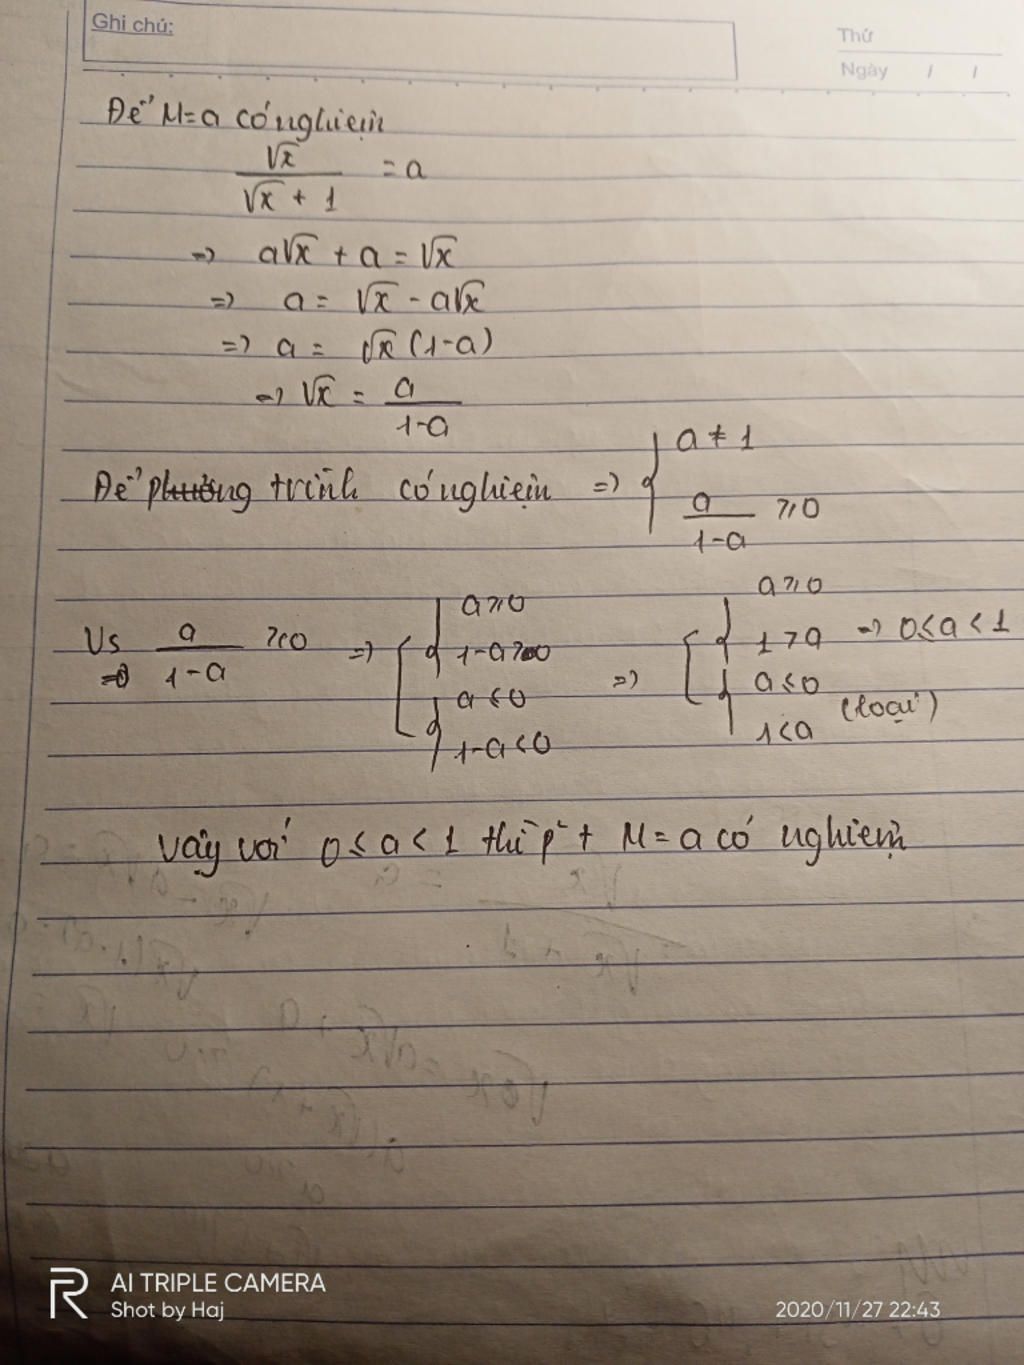 Ghi chú:
Thứ
Ngày / /
Để M=a có nghiệm
√x / (√x + 1) = a
=> a√x + a = √x
=> a = √x - a√x
=> a = √x (1-a)
=> √x = a / (1-a)
Để phương trình có nghiệm => { a ≠ 1
a / (1-a) ≥ 0
Vs a / (1-a) ≥ 0 => [ { a ≥ 0
1-a > 0
{ a ≤ 0
1-a < 0
=> [ { a ≥ 0
1 > a => 0 ≤ a < 1
{ a ≤ 0
1 < a (loại)
Vậy với 0 ≤ a < 1 thì p² + M = a có nghiệm
AI TRIPLE CAMERA
Shot by Haj
2020/11/27 22:43